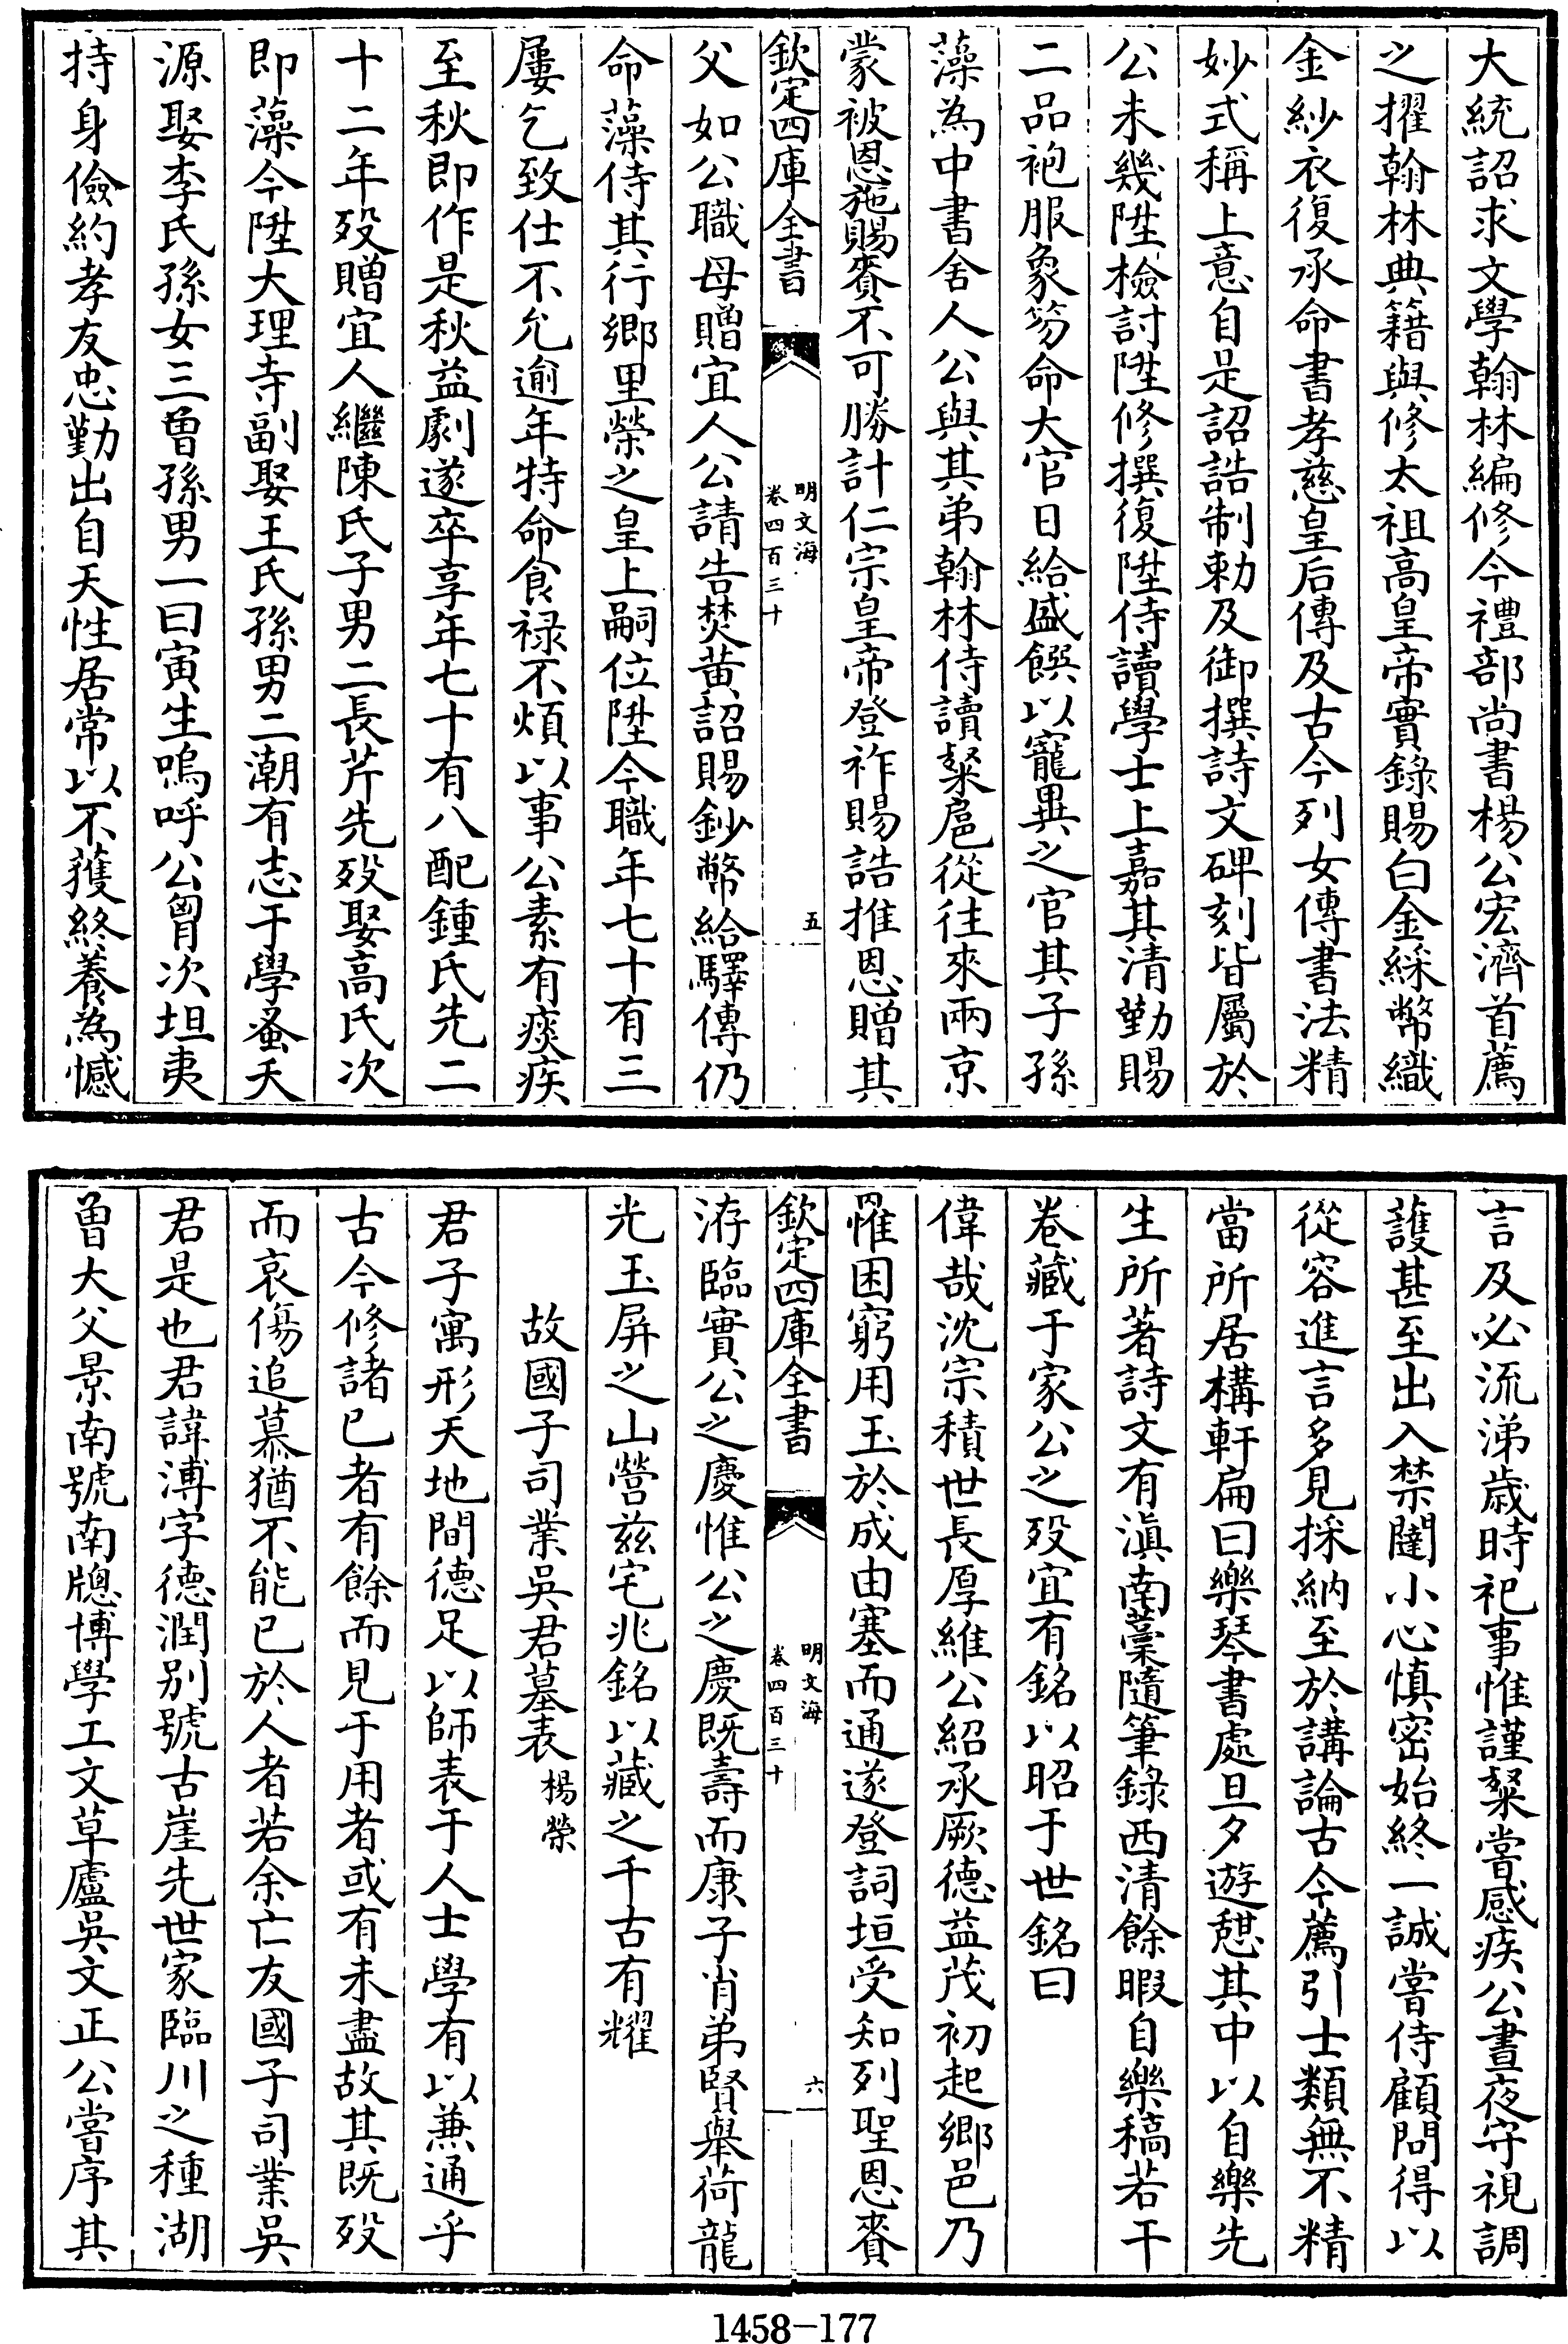 大統詔求文學翰林編修今禮部尚書楊公宏濟首薦
之擢翰林典籍與修太祖高皇帝實錄賜白金綵幣織
金紗衣復承命書孝慈皇后傳及古今列女傳書法精
妙式稱上意自是詔誥制勅及御撰詩文碑刻皆屬於
公未幾陞檢討陞修撰復陞侍讀學士上嘉其清勤賜
二品袍服象笏命大官日給盛饌以寵異之官其子孫
藻為中書舍人公與其弟翰林侍讀粲扈從往來兩京
蒙被恩施賜賚不可勝計仁宗皇帝登祚賜誥推恩贈其
欽定四庫全書
明文海
卷四百三十
五
父如公職母贈宜人公請告焚黄詔賜鈔幣給驛傳仍
命藻侍其行鄉里榮之皇上嗣位陞今職年七十有三
屢乞致仕不允逾年特命食禄不煩以事公素有痰疾
至秋即作是秋益劇遂卒享年七十有八配鍾氏先二
十二年殁贈宜人繼陳氏子男二長芹先殁娶高氏次
即藻今陞大理寺副娶王氏孫男二潮有志于學蚤夭
源娶李氏孫女三曽孫男一曰寅生嗚呼公胷次坦夷
持身儉約孝友忠勤出自天性居常以不獲終養為憾
言及必流涕歲時祀事惟謹粲嘗感疾公晝夜守視調
護甚至出入禁闥小心慎密始終一誠嘗侍顧問得以
從容進言多見採納至於講論古今薦引士類無不精
當所居構軒扁曰樂琴書處旦夕遊憇其中以自樂先
生所著詩文有滇南藁隨筆錄西清餘暇自樂稿若干
卷藏于家公之殁宜有銘以昭于世銘曰
偉哉沈宗積世長厚維公紹承厥德益茂初起鄉邑乃
罹困窮用玉於成由塞而通遂登詞垣受知列聖恩賚
欽定四庫全書
明文海
卷四百三十
六
洊臨實公之慶惟公之慶既壽而康子肖弟賢舉荷龍
光玉屏之山營兹宅兆銘以藏之千古有耀
故國子司業吳君墓表楊榮
君子寓形天地間德足以師表于人士學有以兼通乎
古今修諸已者有餘而見于用者或有未盡故其既殁
而哀傷追慕猶不能已於人者若余亡友國子司業吳
君是也君諱溥字德潤别號古崖先世家臨川之種湖
曽大父景南號南牎博學工文草廬吳文正公嘗序其
1458-177